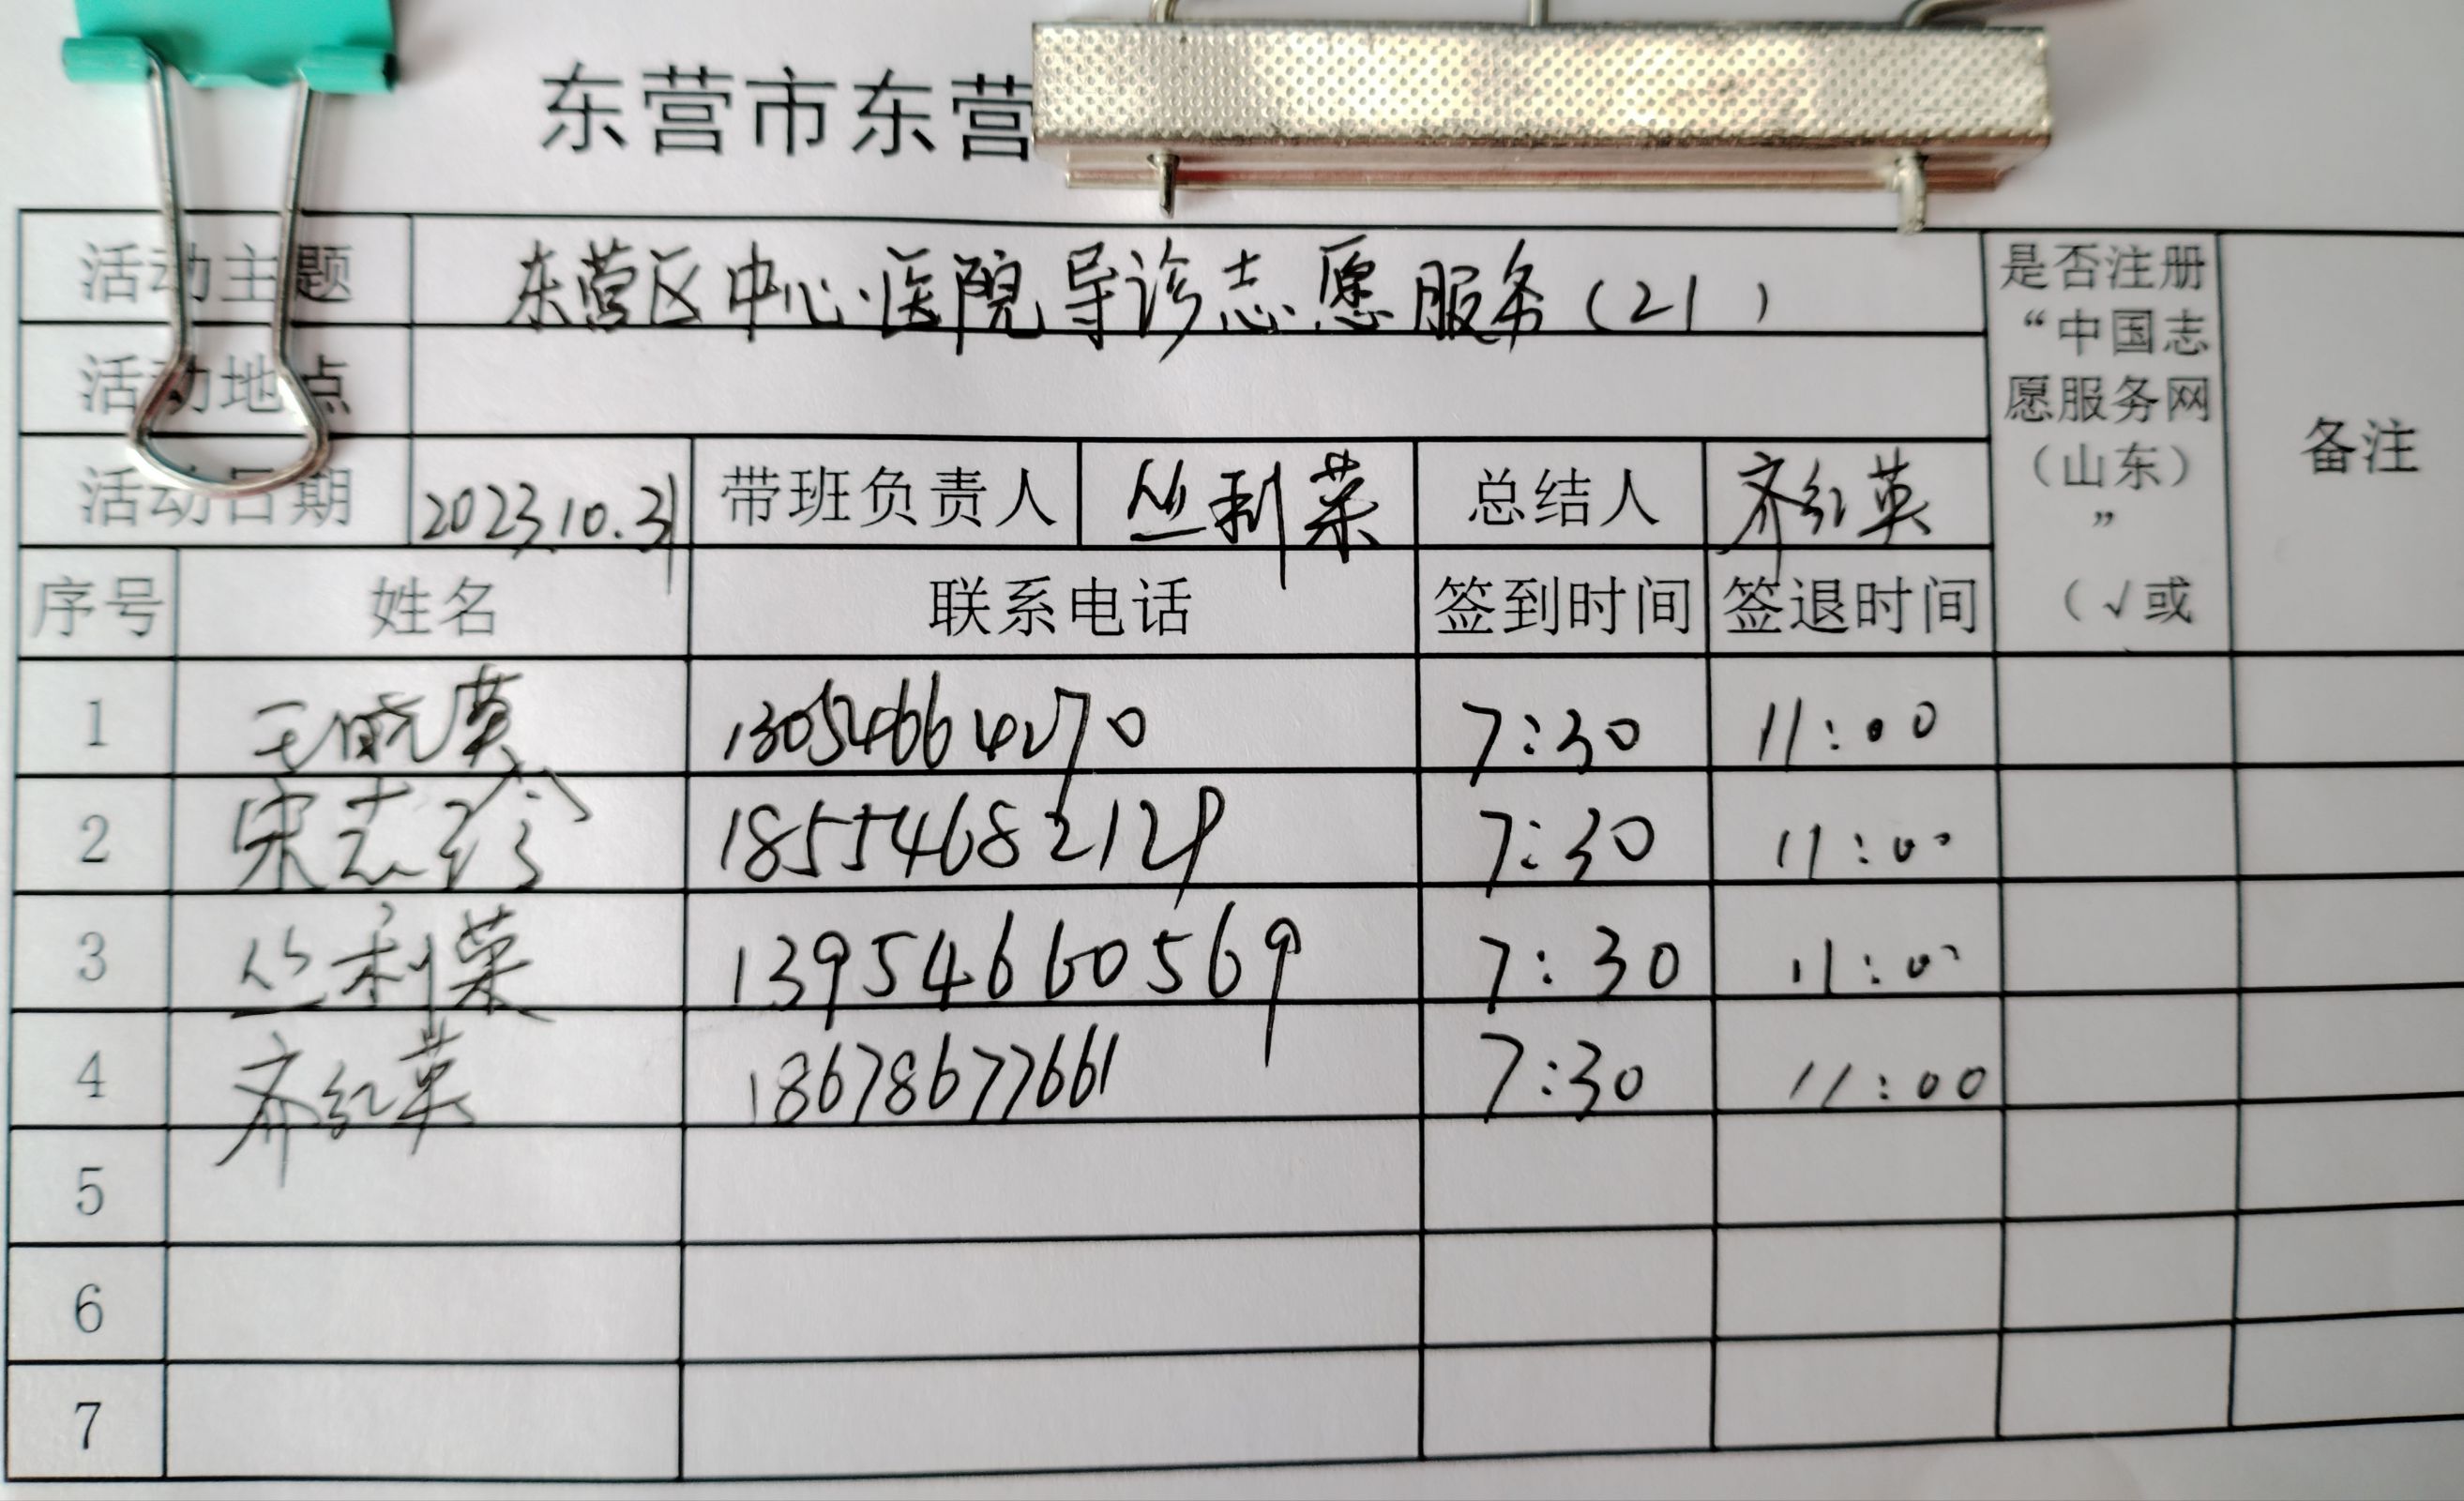 东营市东营
活动主题 东营区中心医院导诊志愿服务(21)
是否注册“中国志愿服务网（山东）”（√或
备注
活动地点
活动日期 2023.10.31 带班负责人 丛利菜 总结人 齐红英
序号 姓名 联系电话 签到时间 签退时间
1 王晓英 13054664270 7:30 11:00
2 宋志玲 18554682129 7:30 11:00
3 丛利菜 13954660569 7:30 11:00
4 齐红英 18678677661 7:30 11:00
5
6
7